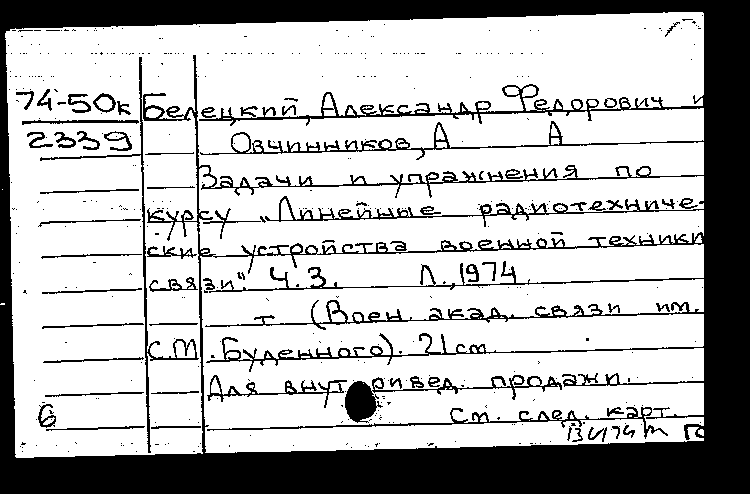 74-50к Белецкий, Александр Федорович и
2339 Овчинников, А А
Задачи и упражнения по
курсу „Линейные радиотехниче-
ские устройства военной техники
связи". Ч.3. Л., 1974
т (Воен. акад. связи им.
С.М. Буденного). 21 см.
Для внутривед. продажи.
6 См. след. карт.